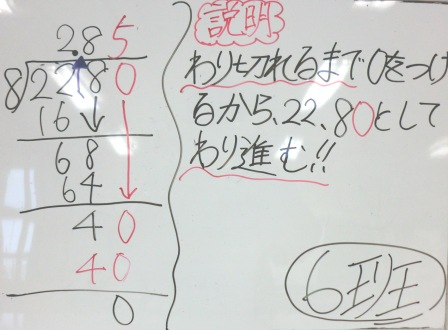 2.85
8)22.80
16
68
64
40
40
0
説明
わり切れるまで0をつけ
るから、22、80として
わり進む!!
6班